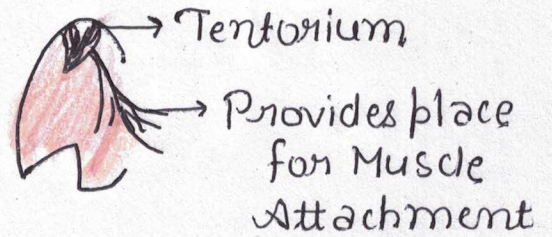 Tentorium
Provides place
for Muscle
Attachment